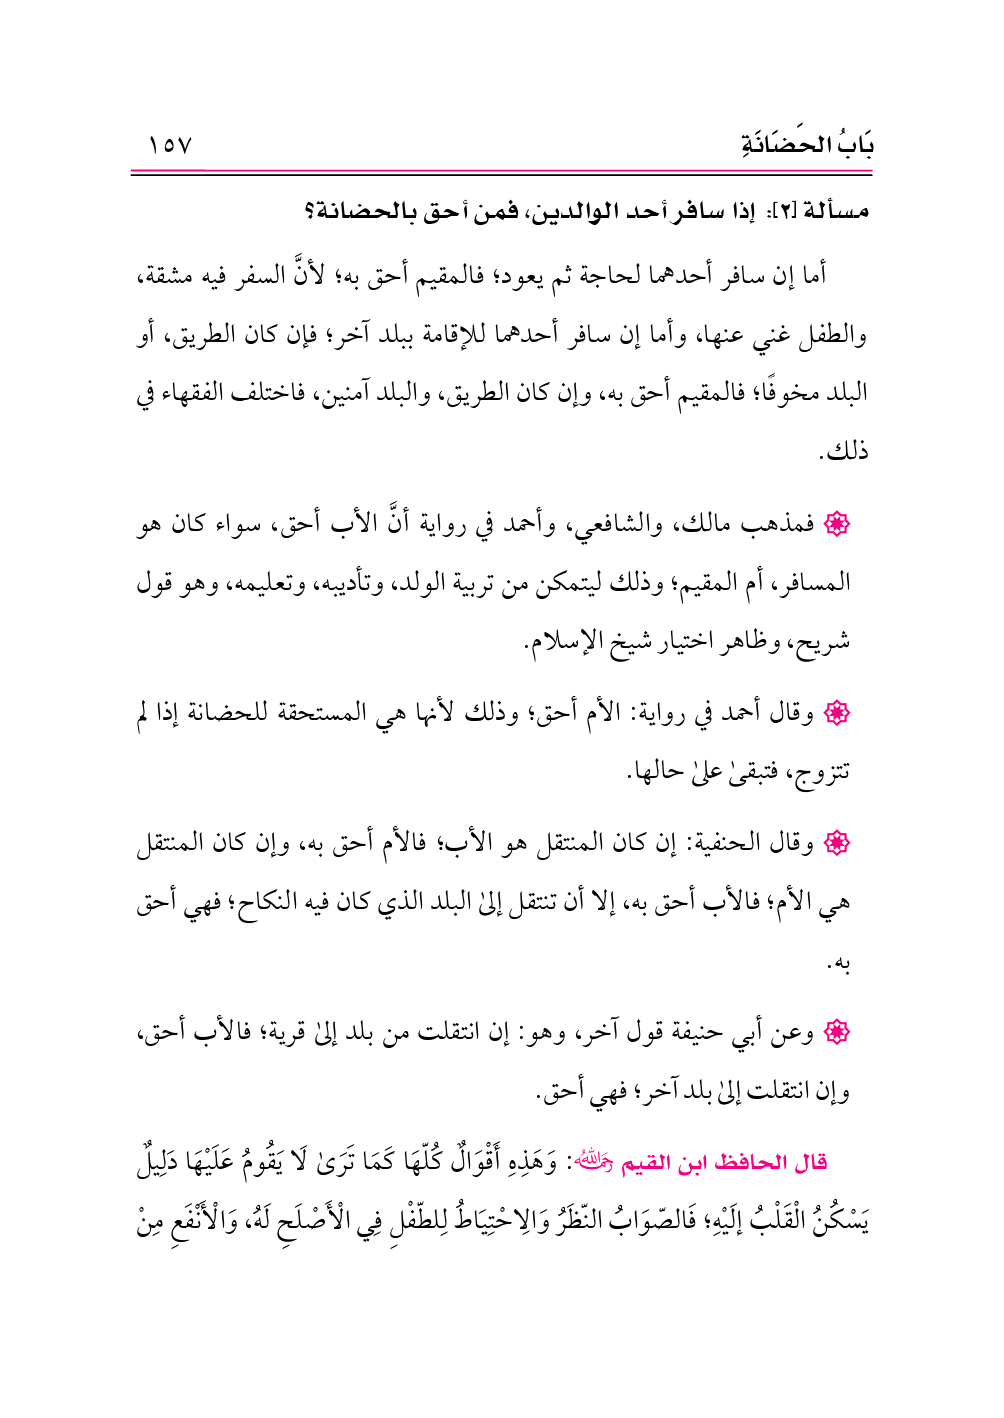 بَابُ الحَضَانَةِ ١٥٧
مسألة [٢]: إذا سافر أحد الوالدين، فمن أحق بالحضانة؟
أما إن سافر أحدهما لحاجة ثم يعود؛ فالمقيم أحق به؛ لأنَّ السفر فيه مشقة،
والطفل غني عنها، وأما إن سافر أحدهما للإقامة ببلد آخر؛ فإن كان الطريق، أو
البلد مخوفًا؛ فالمقيم أحق به، وإن كان الطريق، والبلد آمنين، فاختلف الفقهاء في
ذلك.
فمذهب مالك، والشافعي، وأحمد في رواية أنَّ الأب أحق، سواء كان هو
المسافر، أم المقيم؛ وذلك ليتمكن من تربية الولد، وتأديبه، وتعليمه، وهو قول
شريح، وظاهر اختيار شيخ الإسلام.
وقال أحمد في رواية: الأم أحق؛ وذلك لأنها هي المستحقة للحضانة إذا لم
تتزوج، فتبقىٰ علىٰ حالها.
وقال الحنفية: إن كان المنتقل هو الأب؛ فالأم أحق به، وإن كان المنتقل
هي الأم؛ فالأب أحق به، إلا أن تنتقل إلىٰ البلد الذي كان فيه النكاح؛ فهي أحق
به.
وعن أبي حنيفة قول آخر، وهو: إن انتقلت من بلد إلىٰ قرية؛ فالأب أحق،
وإن انتقلت إلىٰ بلد آخر؛ فهي أحق.
قال الحافظ ابن القيم رحمه الله: وَهَذِهِ أَقْوَالٌ كُلّهَا كَمَا تَرَىٰ لَا يَقُومُ عَلَيْهَا دَلِيلٌ
يَسْكُنُ الْقَلْبُ إلَيْهِ؛ فَالصّوَابُ النّظَرُ وَالِاحْتِيَاطُ لِلطّفْلِ فِي الْأَصْلَحِ لَهُ، وَالْأَنْفَعِ مِنْ